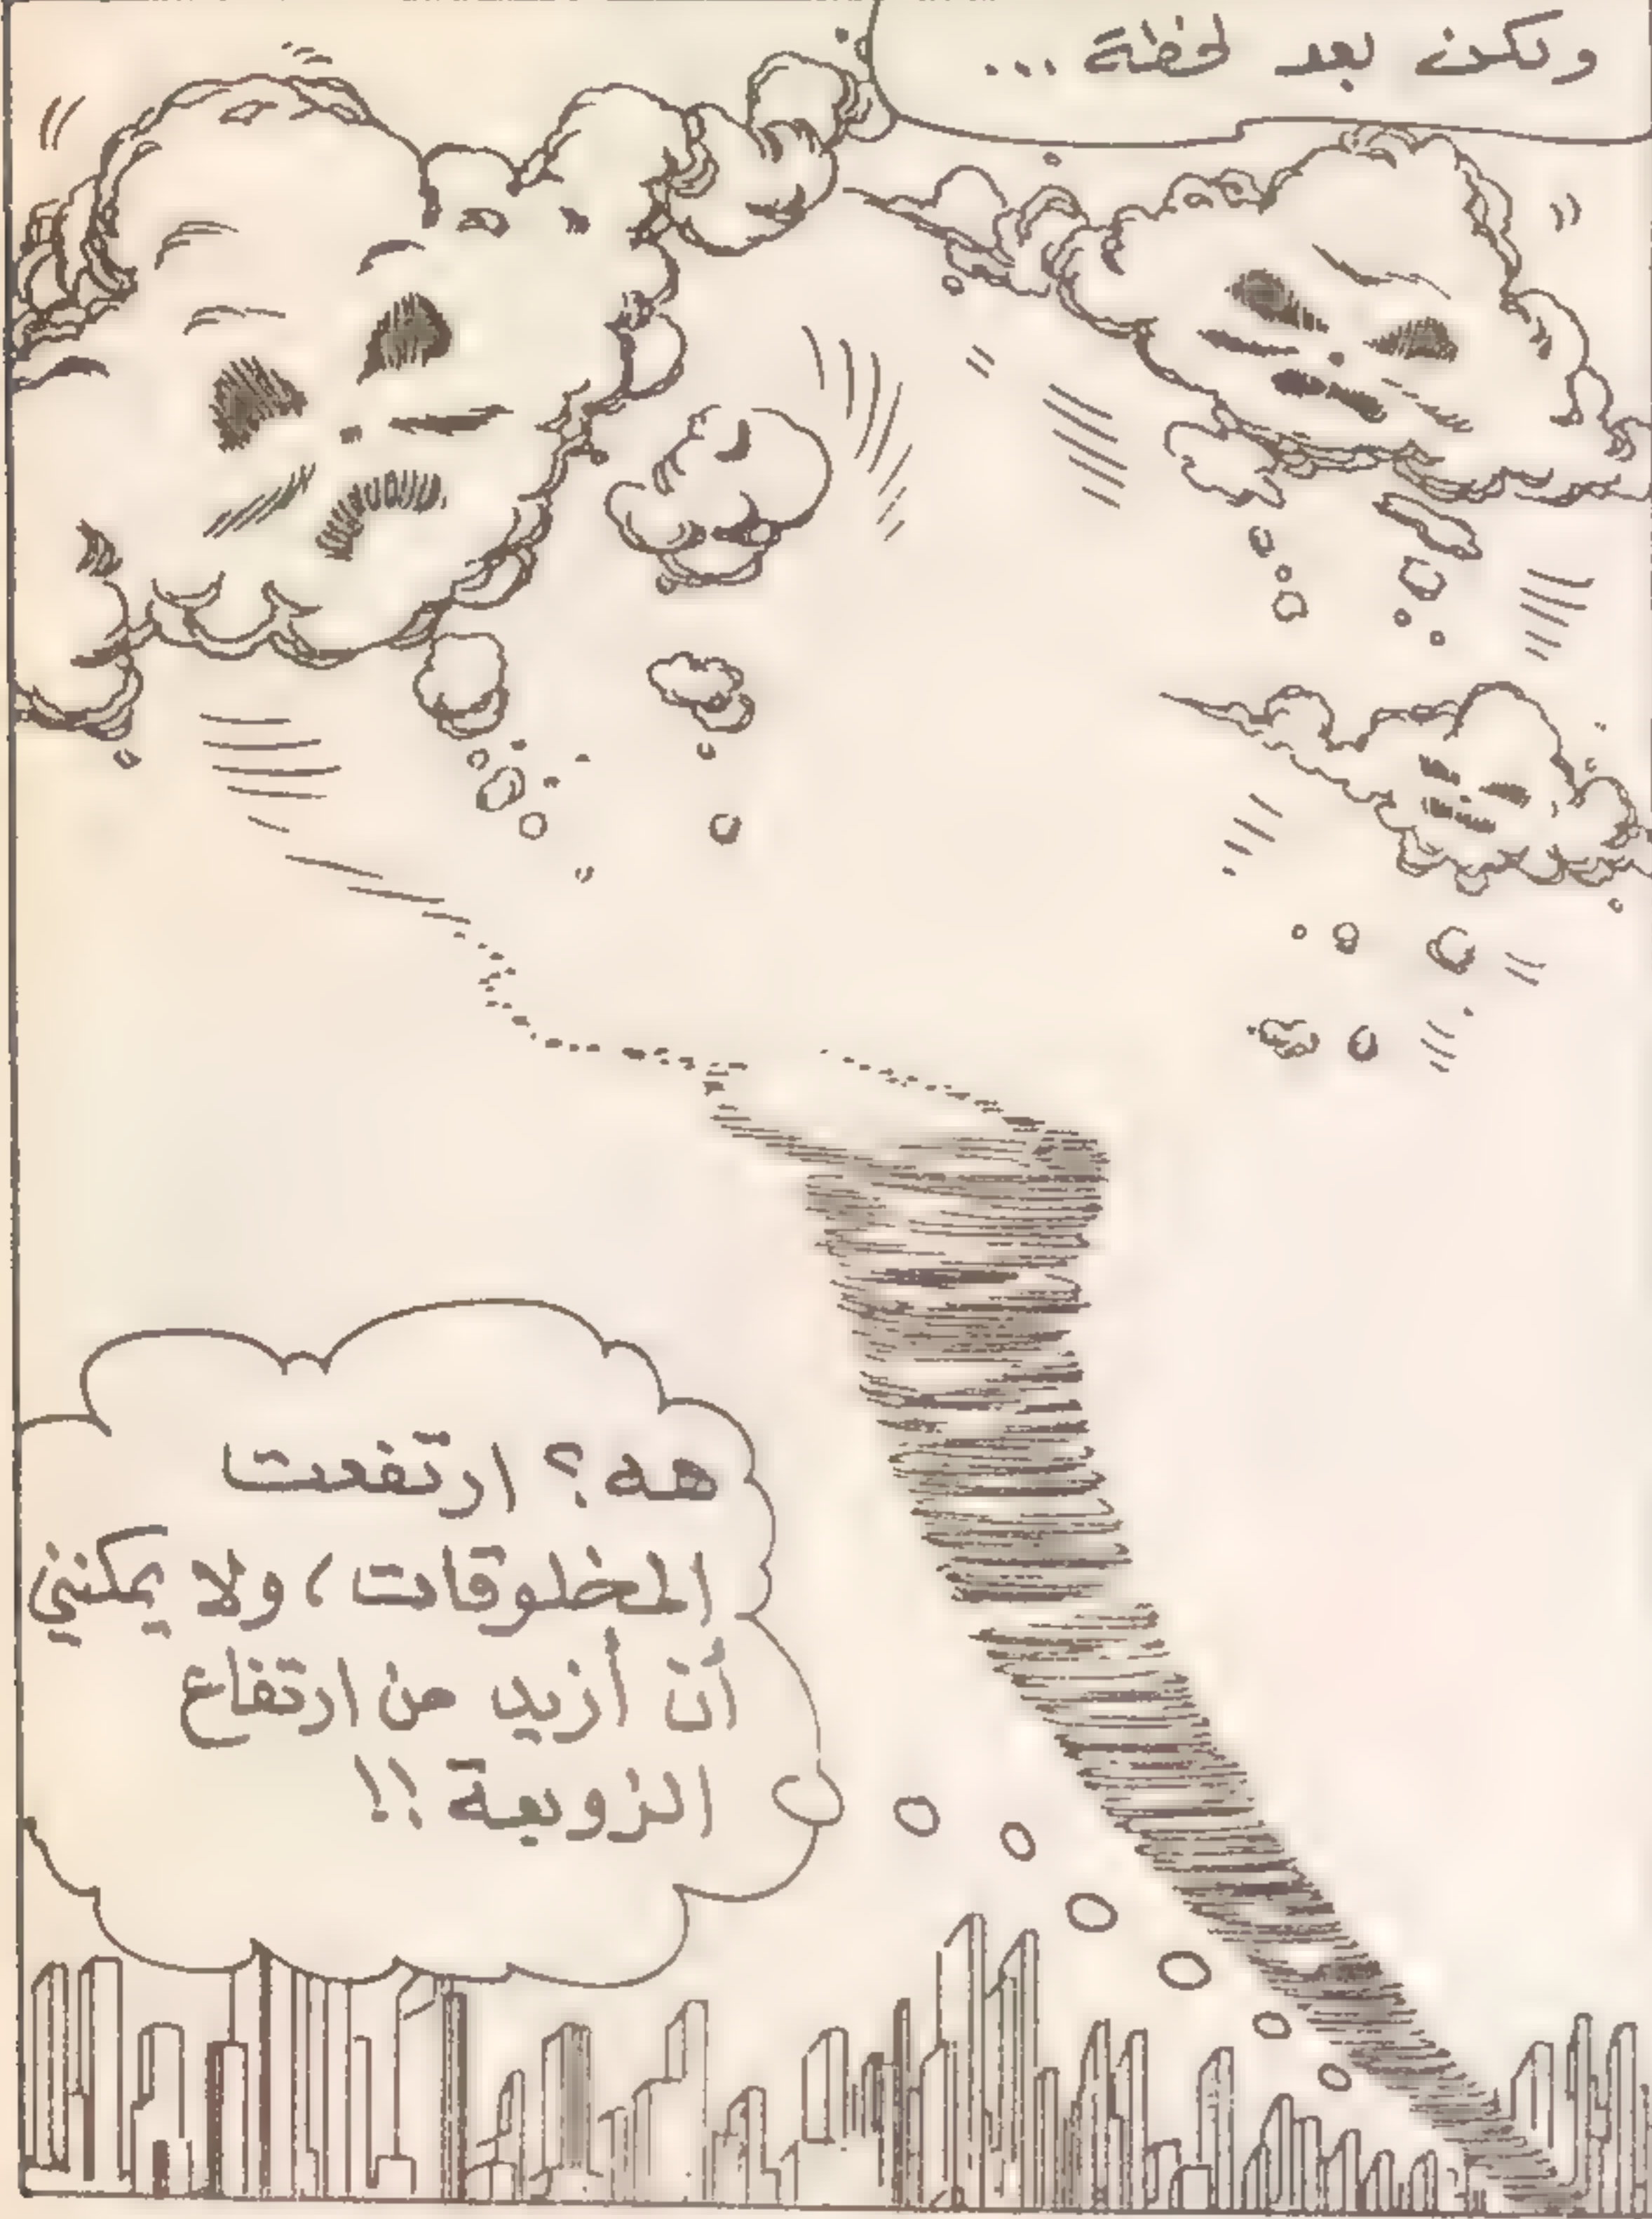 ولكن بعد لحظة ...
هه؟ ارتفعت
المخلوقات، ولا يمكنني
أن أزيد من ارتفاع
الزوبعة !!